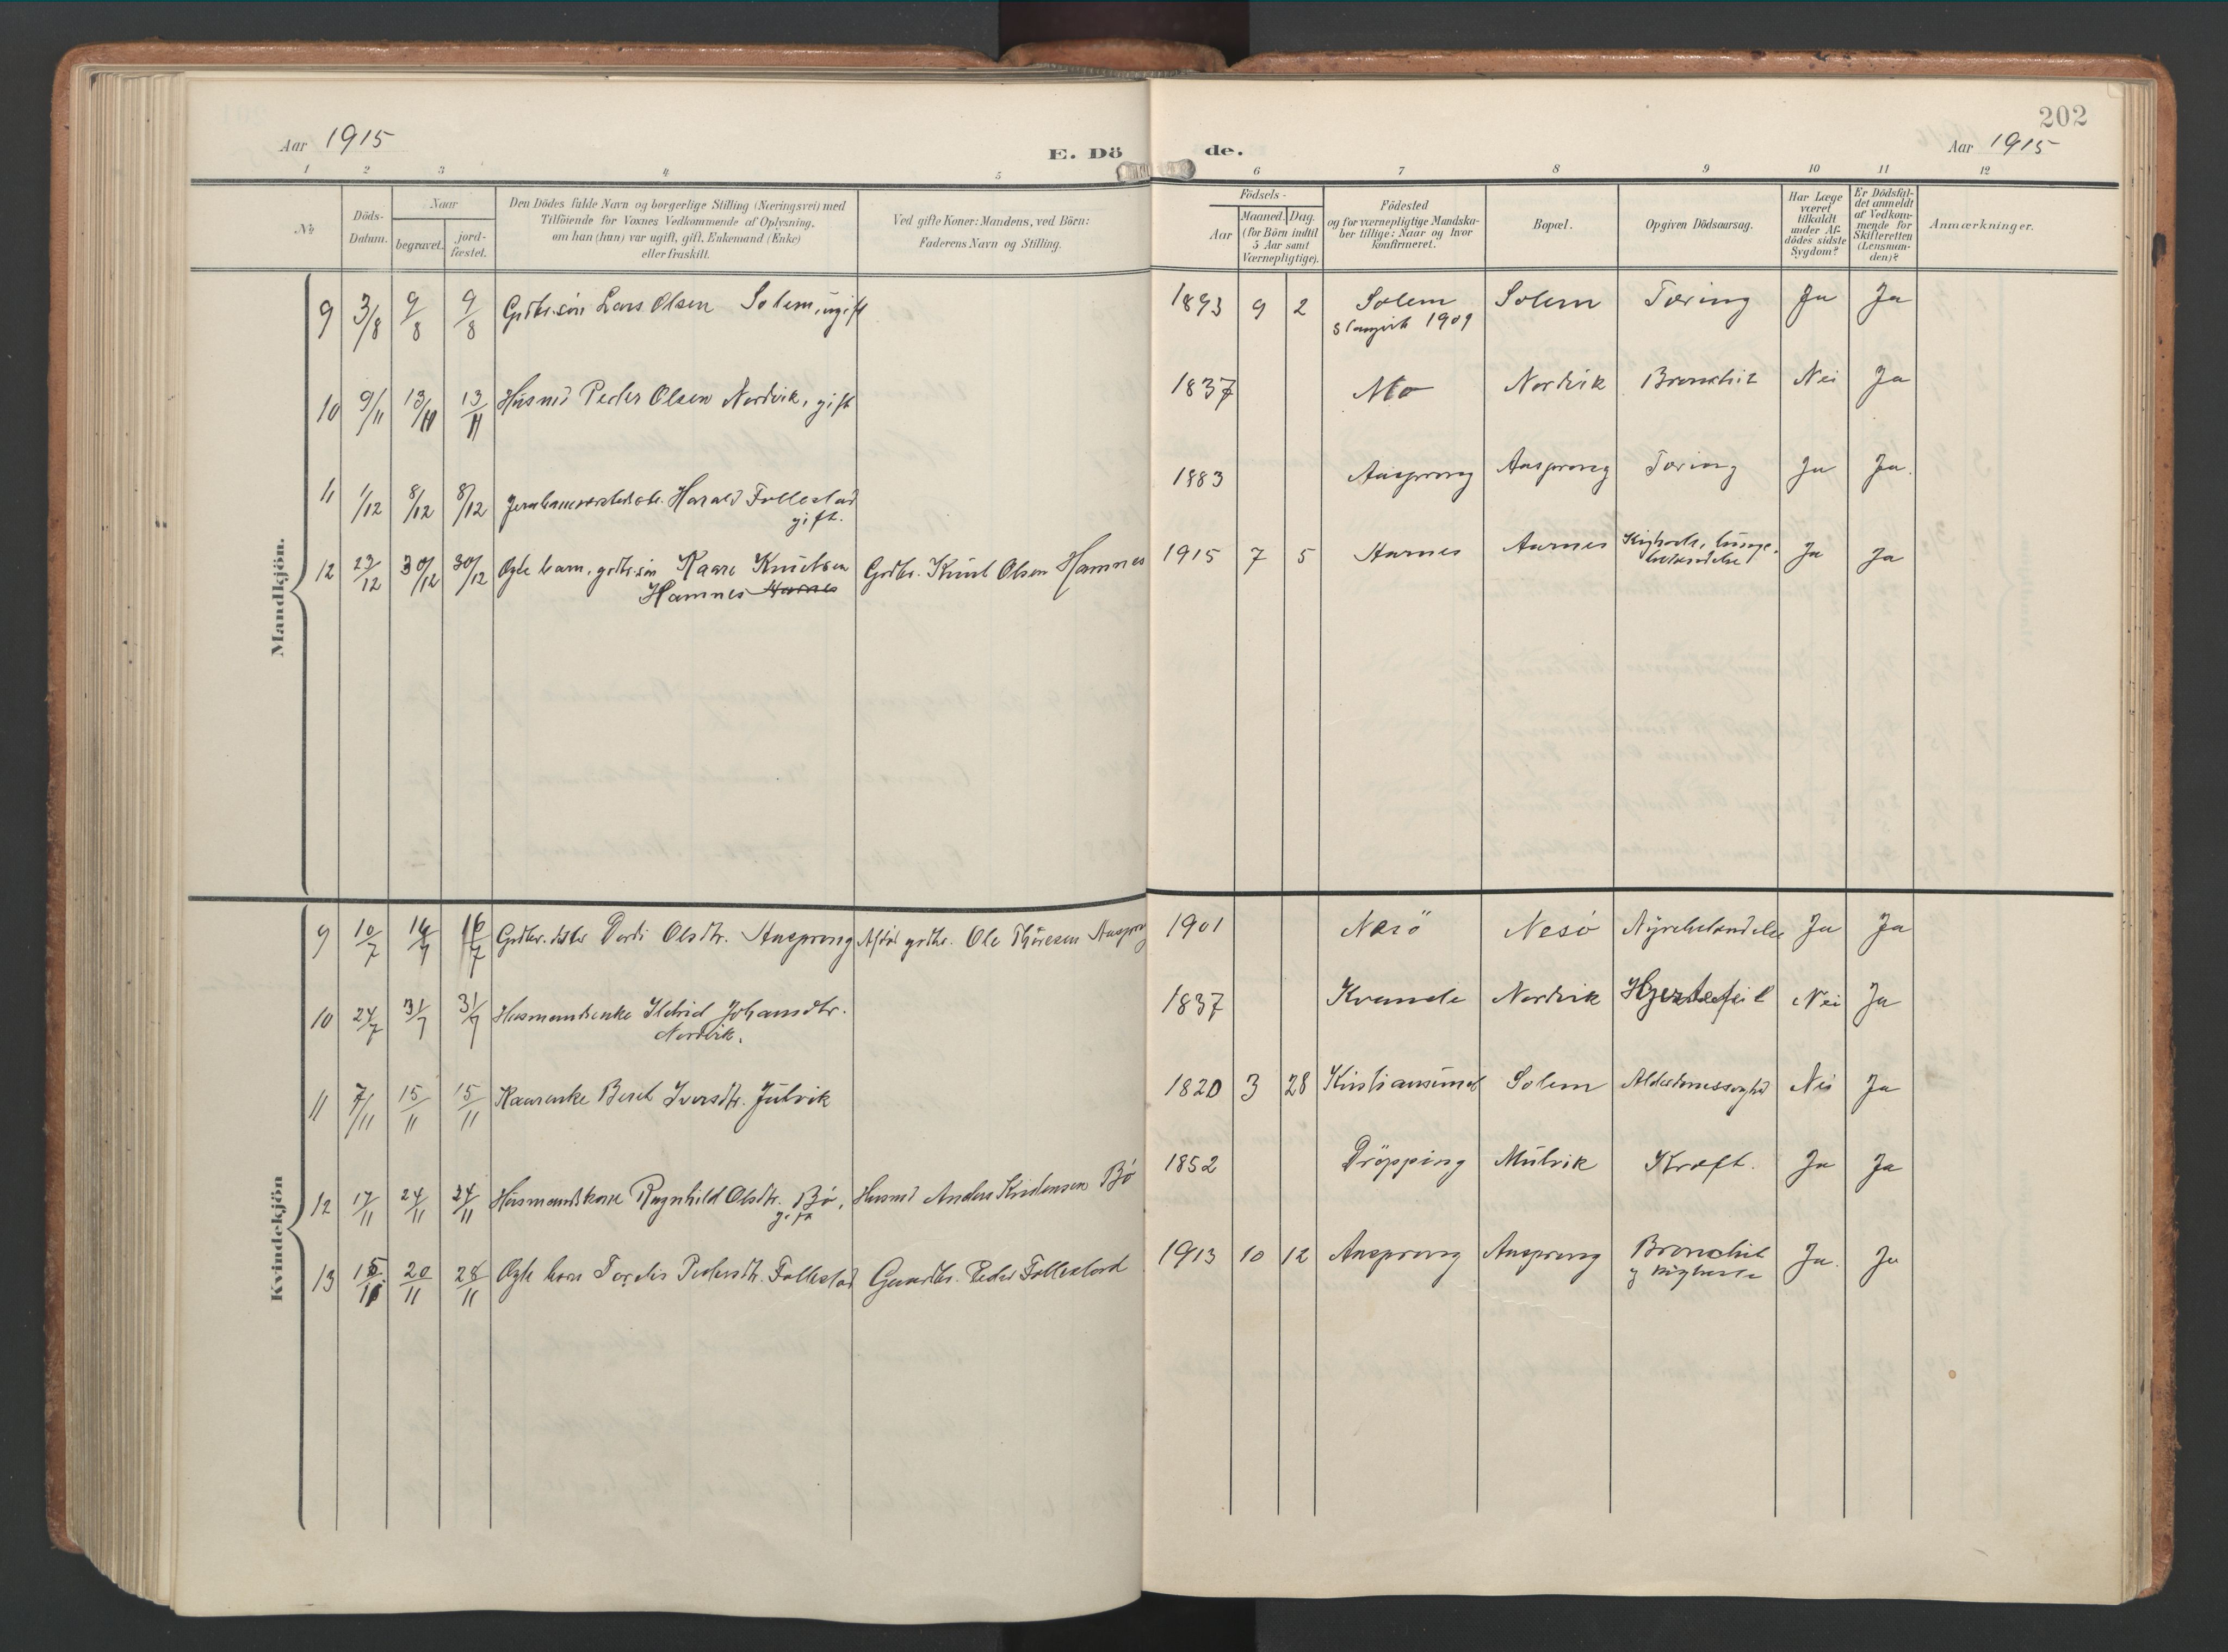 202
Aar 1915
E. Dö de.
Aar 1915
1 2 3 4 5 6 7 8 9 10 11 12
№
Döds-
Datum.
Naar
begravet.
jord-
fæstet.
Den Dödes fulde Navn og borgerlige Stilling (Næringsvei) med
Tilföiende for Voxnes Vedkommende af Oplysning,
om han (hun) var ugift, gift, Enkemand (Enke)
eller fraskilt.
Ved gifte Koner: Mandens, ved Börn:
Faderens Navn og Stilling.
Födsels-
Aar
Maaned. Dag.
(for Börn indtil
5 Aar samt
Værnepligtige).
Födested
og for værnepligtige Mandska-
ber tillige: Naar og hvor
konfirmeret.
Bopæl.
Opgiven Dödsaarsag.
Har Læge
været
tilkaldt
under Af-
dödes sidste
Sygdom?
Er Dödsfal-
det anmeldt
af Vedkom-
mende for
Skifteretten
(Lensman-
den)?
Anmærkninger.
Mandkjön.
9 3/8 9/8 9/8 Grdbr.sön Lars Olsen Solem, ugift 1893 9 2 Solem Solem Tæring Ja Ja
1909
10 9/11 13/11 13/11 Husmd Peder Olsen Nordvik, gift 1837 Mo Nordvik Bronchit Nei Ja
11 1/12 8/12 8/12 Harald Follestad 1883 Aasprong Aasprong Tæring Ja Ja.
gift.
12 23/12 30/12 30/12 Ægte barn, grdbr.sön Kaare Knutsen Grdbr. Knut Olsen Hamnes 1915 7 5 Hamnes Aarnes Kighoste, lunge- Ja Ja
Hamnes betændelse
Kvindekjön
9 10/7 16/7 Grdbr. datter Dordi Olsdtr. Aasprong Afdöd grdbr. Ole Thoresen Aasprong 1901 Nesö Nesö Nyrebetændelse Ja Ja
10 24/7 31/7 31/7 Husmandsenke Ildrid Johansdtr. 1837 Kvande Nordvik Hjertefeil Nei Ja
Nordvik.
11 7/11 15/11 15/11 Kaarenke Beret Iversdtr. Julvik 1820 3 28 Kristiansund Solem Alderdomssvaghed Nei Ja
12 17/11 24/11 24/11 Husmandskone Ragnhild Olsdtr. Bö, Husmd Anders Kristensen Bö 1852 Dröpping Mulvik Kræft. Ja Ja
gift
13 20/11 28/11 Ægte barn Tordis Pedersdtr. Follestad Gaardbr. Peder Follestad 1913 10 12 Aasprong Aasprong Bronchit Ja. Ja
og kighoste